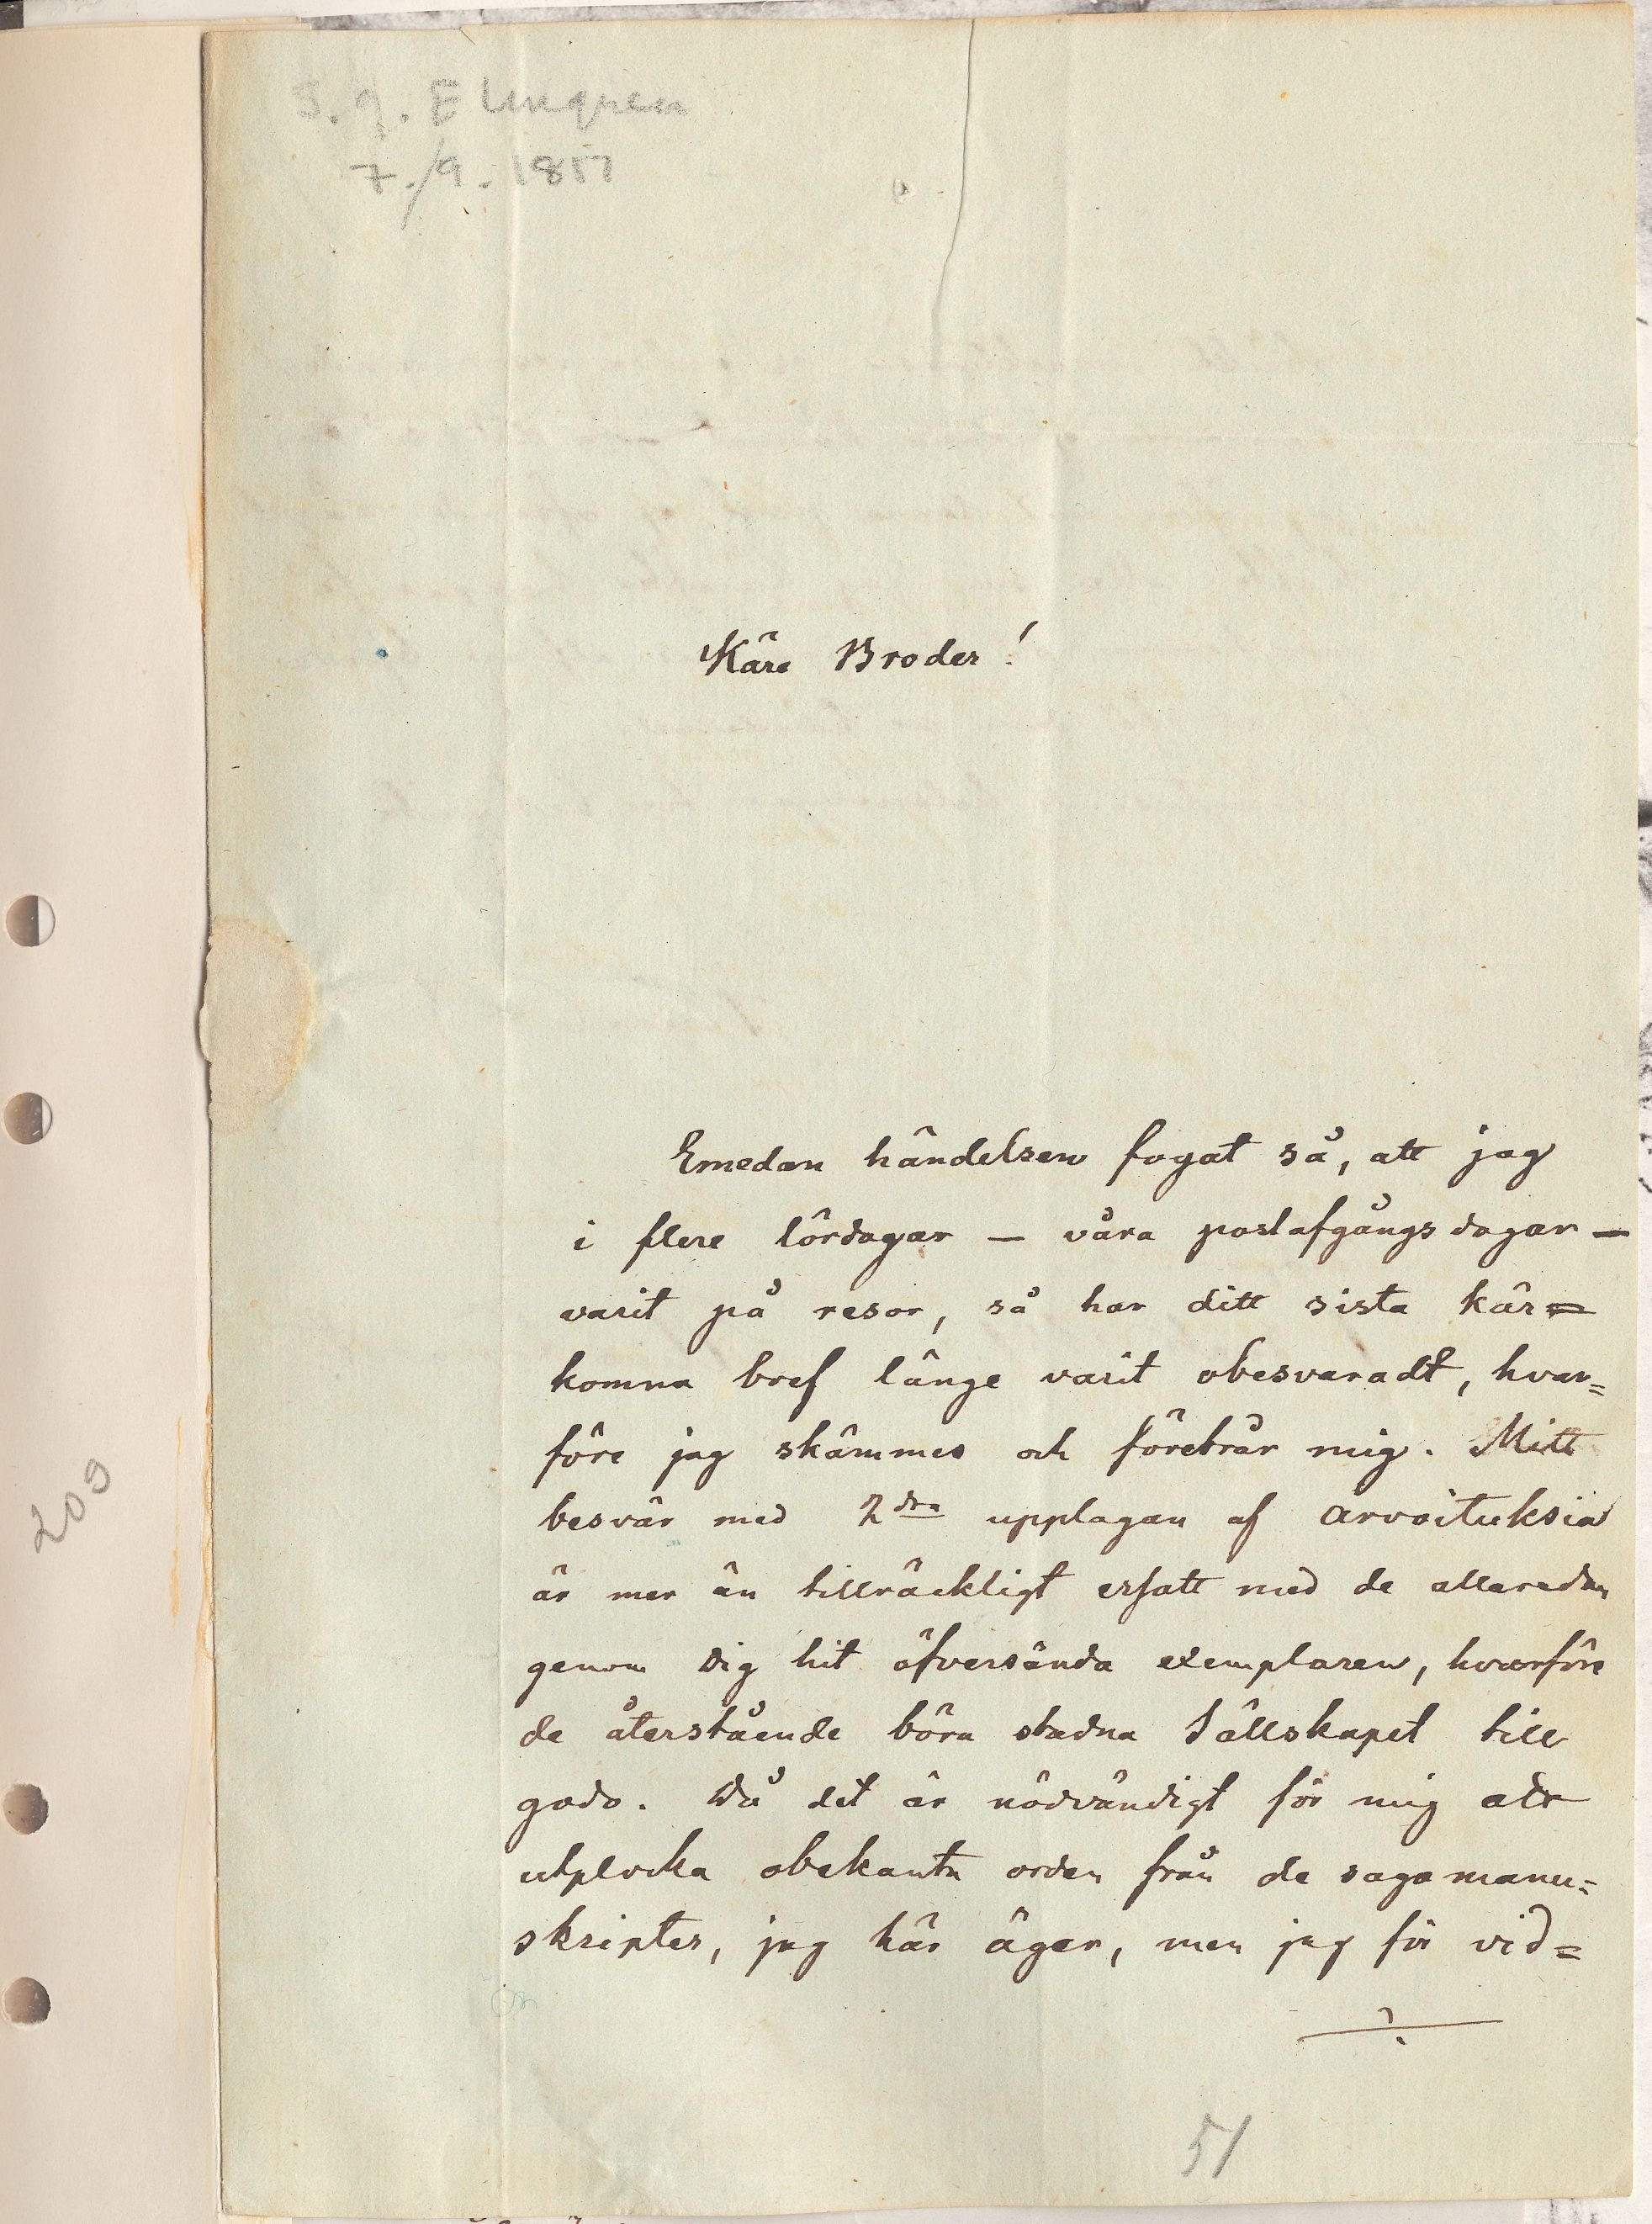 S. G. Elmgren
7./9. 1851
Käre Broder!
Emedan händelsen fogat så, att jag
i flere lördagar – våra postafgångsdagar –
varit på resor, så har ditt sista kär=
komna bref länge varit obesvaradt, hvar=
före jag skämmes och förebrår mig. Mitt
besvär med 2dra upplagan af Arvoituksia
är mer än tillräckligt ersatt med de allaredan
genom Dig hit öfversända exemplaren, hvarföre
de återstående böra stadna Sällskapet till
godo. Då det är nödvändigt för mig att
utplocka obekanta orden från de sagomanu=
skripter, jag här äger, men jag för vid=
÷
51
209